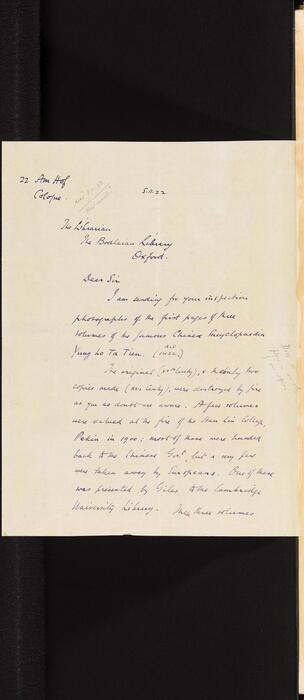 22 Am Hof
Cologne.
5.11.22
The Librarian
The Bodleian Library
Oxford.
Dear Sir
I am sending for your inspection
photographs of the first pages of three
volumes of the famous Chinese Encyclopaedia
Yung Lo Ta Tien.
The original (XVth Centy), & the only two
copies made (XVI Centy), were destroyed by fire
as you no doubt are aware. A few volumes
were at the fire of the Han Lin College,
Pekin in 1900; most of these were handed
back to the Chinese Govt. but a very few
were taken away by Europeans. One of these
was presented by Giles to the Cambridge
University Library. three volumes